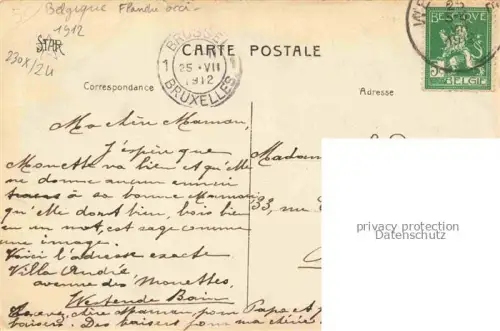 Belgique Flandre occi-
1912
230X/24
STAR
BRUSSEL
1
25 VII
1912
BRUXELLES
CARTE POSTALE
BELGIQUE
BELGIE
Correspondance
Adresse
Ma chère Maman,
J'espère que
Monette va bien et qu'Elle
ne donne aucun ennui
tracas à sa bonne Maman
qu'Elle dort bien, bois bien
en un mot, est sage comme
une image.
Voici l'adresse exacte
Villa André,
avenue des Mouettes,
Westende Bain
chère Maman, pour Papa et
baisers. Des baisers pour ma chérie
Madam
33, rue
privacy protection
Datenschutz